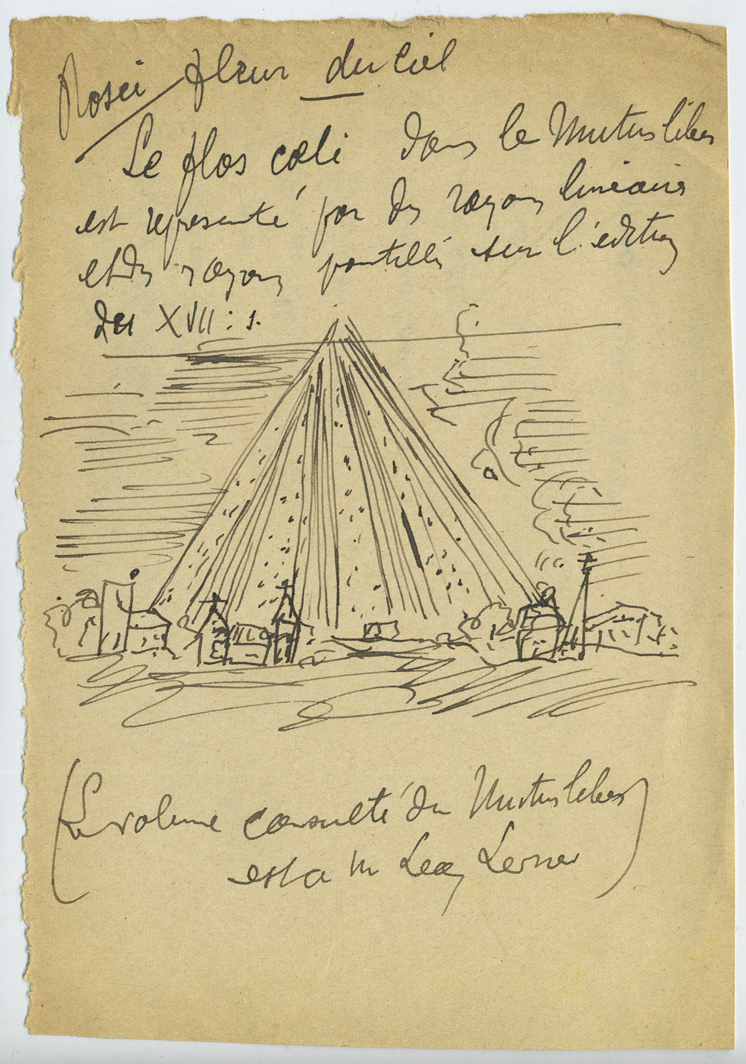 Rosée fleur du ciel
Le flos cœli dans le Mutus liber
est représenté par des rayons linéaires
et des rayons pointillés sur l'édition
du XVII: s.
(Le volume consulté du Mutus liber
est a M Lerner)